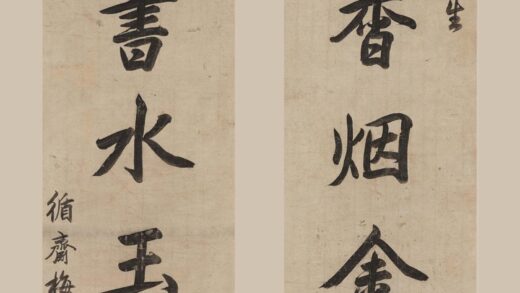 生
香烟金
書水玉
循齋梅